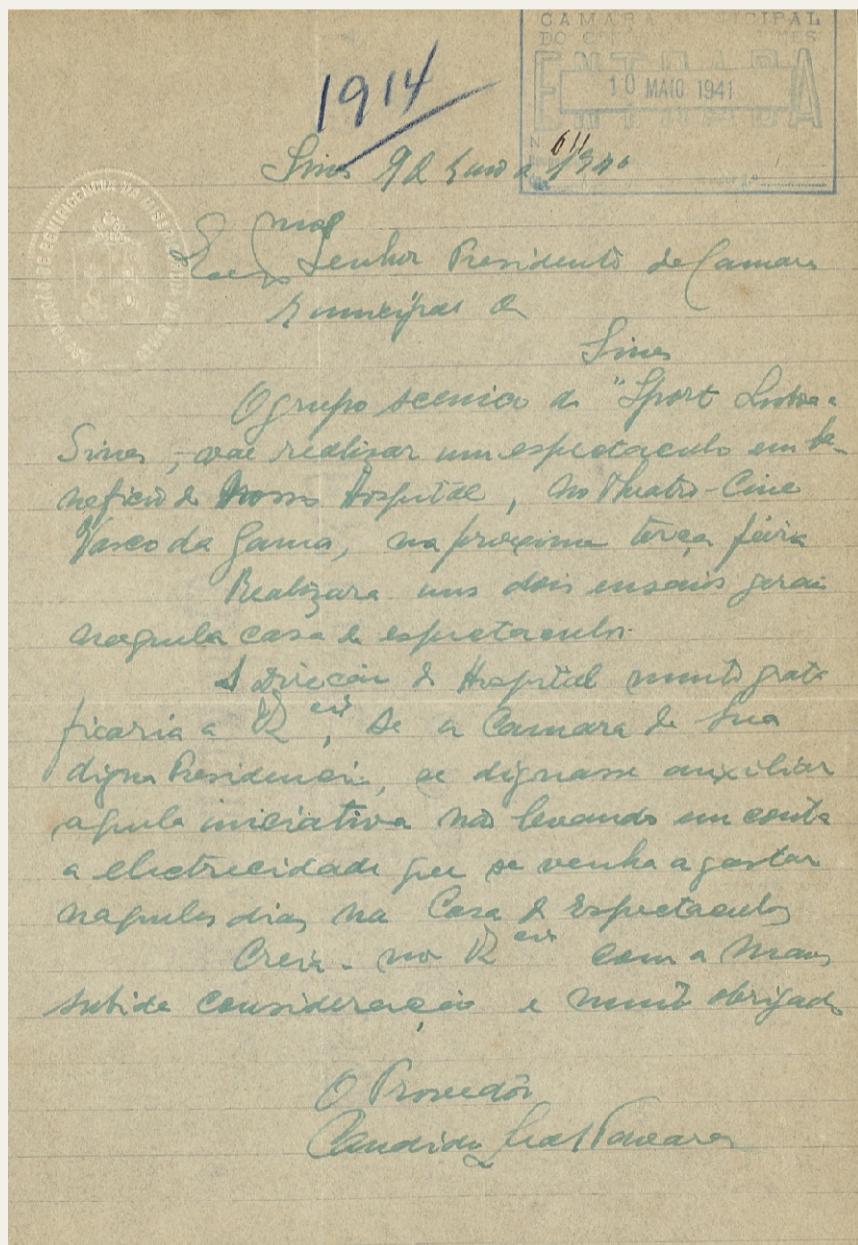 CAMARA MUNICIPAL
DO CONCELHO DE SINES
ENTRADA
10 MAIO 1941
611
1914
Sines 9 de Maio de
Senhor Presidente da Camara
Municipal de
Sines
O grupo scenico do "Sport Lisboa e
Sines, vae realisar um espectaculo em be-
neficio do Nosso Hospital, no Theatro-Cine
Vasco da Gama, na proxima terça feira
Realizara uns dois ensaios gerais
naquela casa de espectaculos.
A Direcção do Hospital muito grata
ficaria a V. Excia, se a Camara de Sua
digna Presidencia, se dignasse auxiliar
aquela iniciativa não levando em conta
a electrecidade que se venha a gastar
naqueles dias na Casa de Espectaculos
Creia-me V. Excia com a mais
subida consideração e muito obrigado
O Provedôr
Candido